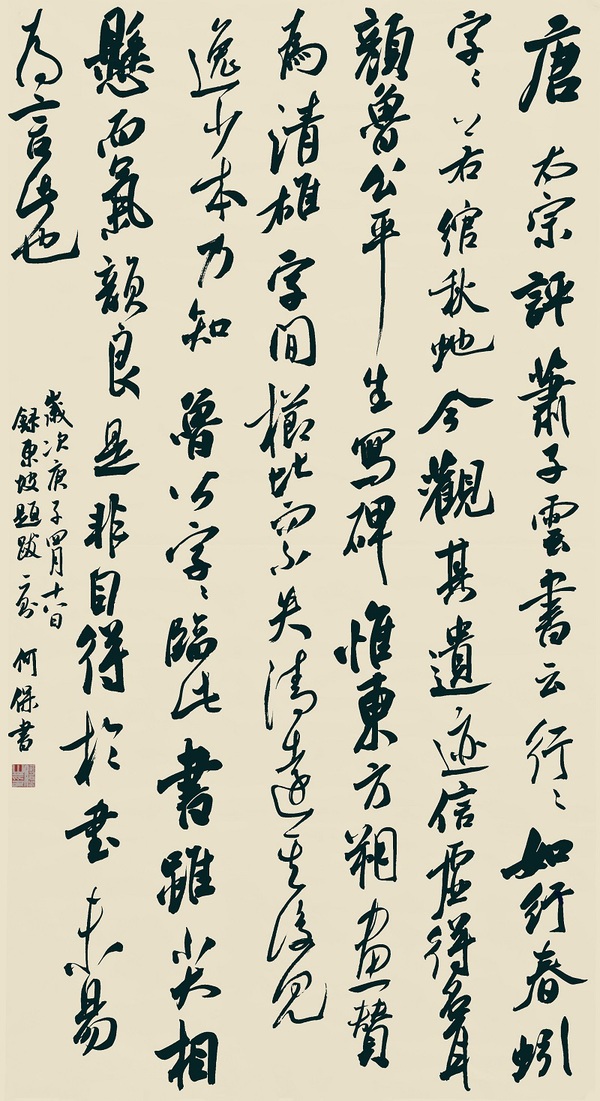 唐太宗評蕭子雲書云行〻如行春蚓
字〻若綰秋蛇今觀其遺迹信虛得名耳
顏魯公平生寫碑惟東方朔畫贊
為清雄字間櫛比而不失清遠其後見
逸少本乃知魯公字〻臨此書雖小大相
懸而氣韻良是非自得於書未易
為言此也
歲次庚子四月十六日
錄東坡題跋一則 何保書